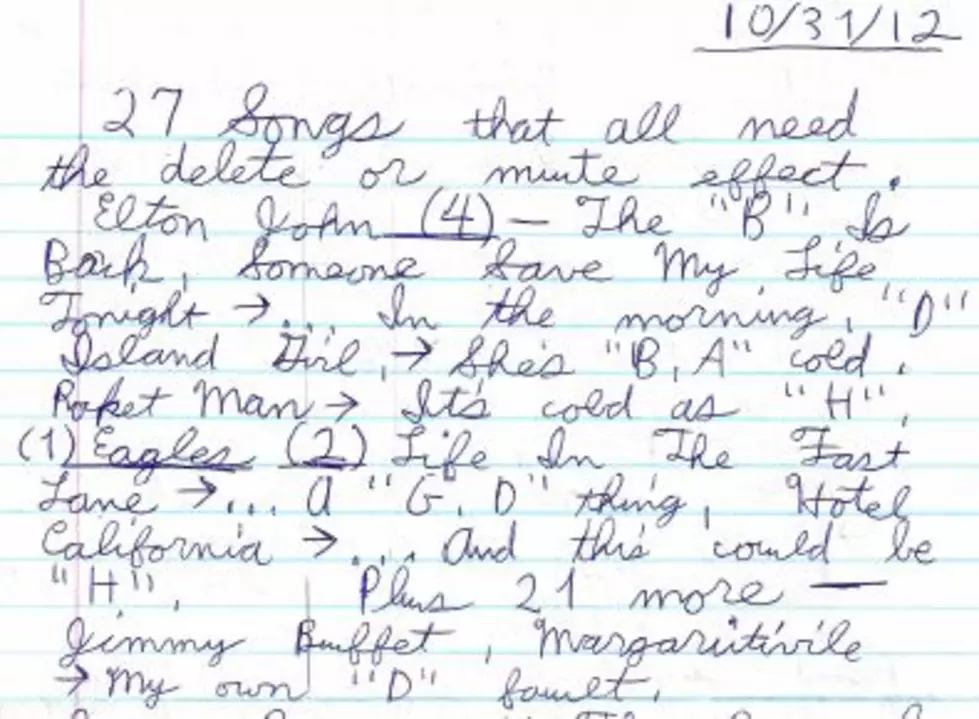 10/31/12
27 Songs that all need
the delete or mute effect.
Elton John (4) – The "B" Is
Back, Someone Save My Life
Tonight →... In the morning, "D"
Island Girl, → She's "B, A" cold.
Roket Man → It's cold as "H",
(1) Eagles (2) Life In The Fast
Lane →... a "G, D" thing, Hotel
California →... And this could be
"H", Plus 21 more —
Jimmy Buffet, Margaritivile
→ My own "D" fault.